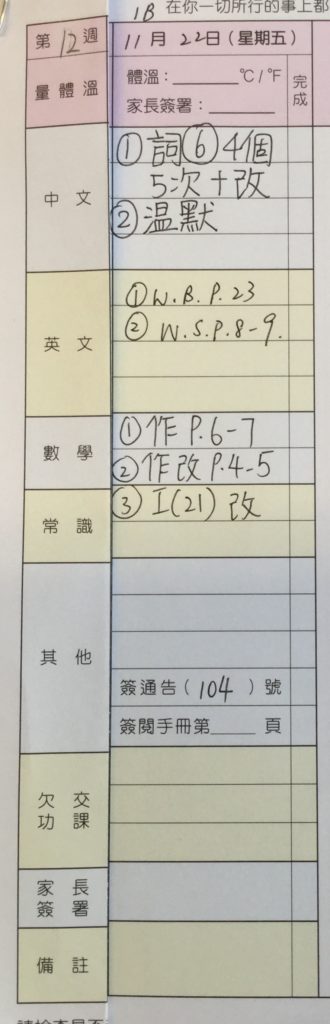 1B 在你一切所行的事上都
第12週 11月22日(星期五)
量體溫 體溫:______℃/℉ 完成
家長簽署:______
中文 ①詞⑥4個
5次+改
②温默
英文 ①W.B.P.23
②W.S.P.8-9.
數學 ①作P.6-7
②作改P.4-5
常識 ③工(21)改
其他
簽通告(104)號
簽閱手冊第____頁
欠交功課
家長簽署
備註